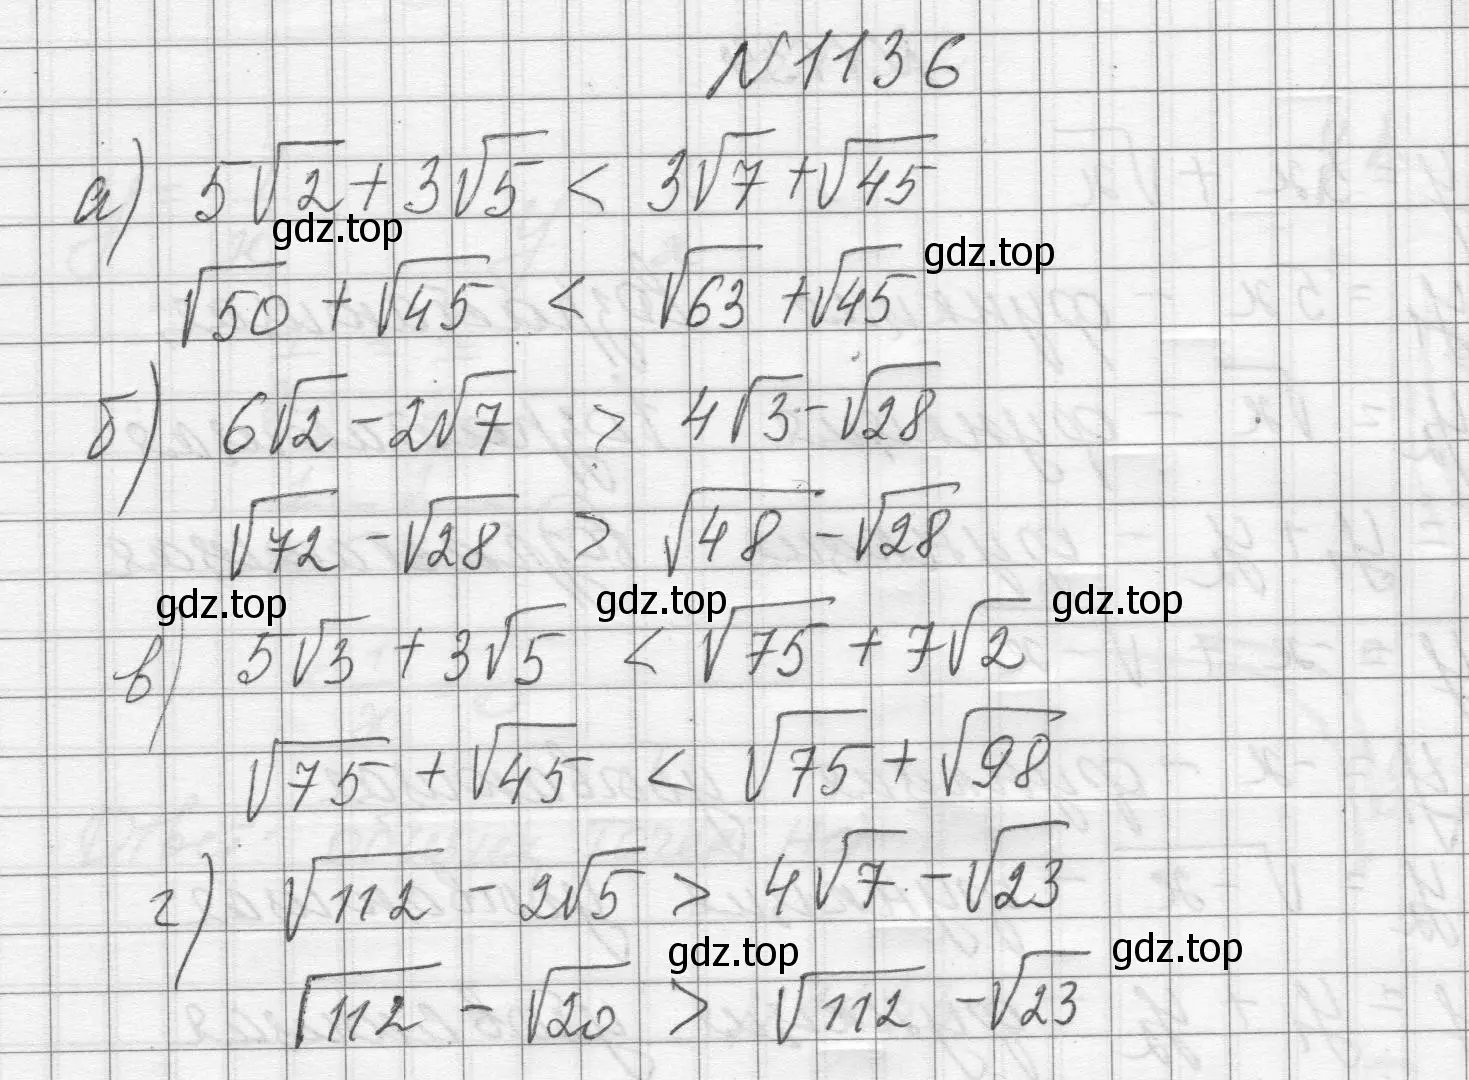 №1136
а) 5√2 + 3√5 < 3√7 + √45
gdz.top
√50 + √45 < √63 + √45 gdz.top
б) 6√2 - 2√7 > 4√3 - √28
√72 - √28 > √48 - √28
gdz.top gdz.top gdz.top
в) 5√3 + 3√5 < √75 + 7√2
√75 + √45 < √75 + √98
г) √112 - 2√5 > 4√7 - √23
gdz.top gdz.top
√112 - √20 > √112 - √23